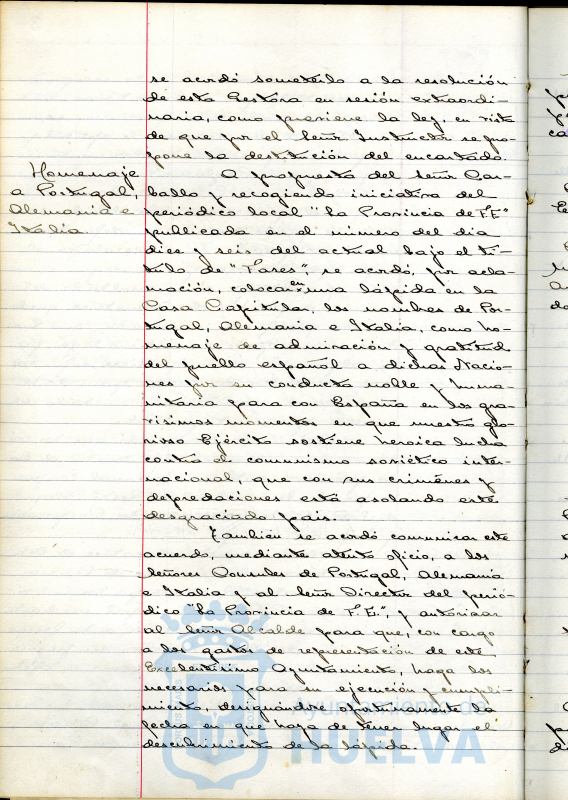 se acordó someterlo a la resolución
de esta Gestora en sesión extraordi-
naria, como previene la ley, en vista
de que por el Señor Instructor se pro-
pone la destitución del encartado.
Homenaje
a Portugal,
Alemania e
Italia
A propuesta del Señor Car-
ballo y recogiendo iniciativa del
periódico local "La Provincia de F.E"
publicada en el número del dia
diez y seis del actual bajo el tí-
tulo de "Lases", se acordó, por acla-
mación, colocar en una lápida en la
Casa Capitular, los nombres de Por-
tugal, Alemania e Italia, como ho-
menaje de admiración y gratitud
del pueblo español a dichas Nacio-
nes por su conducta noble y huma-
nitaria para con España en los gra-
vísimos momentos en que nuestro glo-
rioso Ejército sostiene heroica lucha
contra el comunismo soviético inter-
nacional, que con sus crimenes y
depredaciones está asolando este
desgraciado pais.
También se acordó comunicar este
acuerdo, mediante atento oficio, a los
Señores Consules de Portugal, Alemania
e Italia y al Señor Director del perió-
dico "La Provincia de F.E.", y autorizar
al Señor Alcalde para que, con cargo
a los gastos de representación de este
Excelentísimo Ayuntamiento, haga los
necesarios para su ejecución y cumpli-
miento, designándose oportunamente la
fecha en que haya de tener lugar el
descubrimiento de la lápida.
Ayuntamiento de
HUELVA